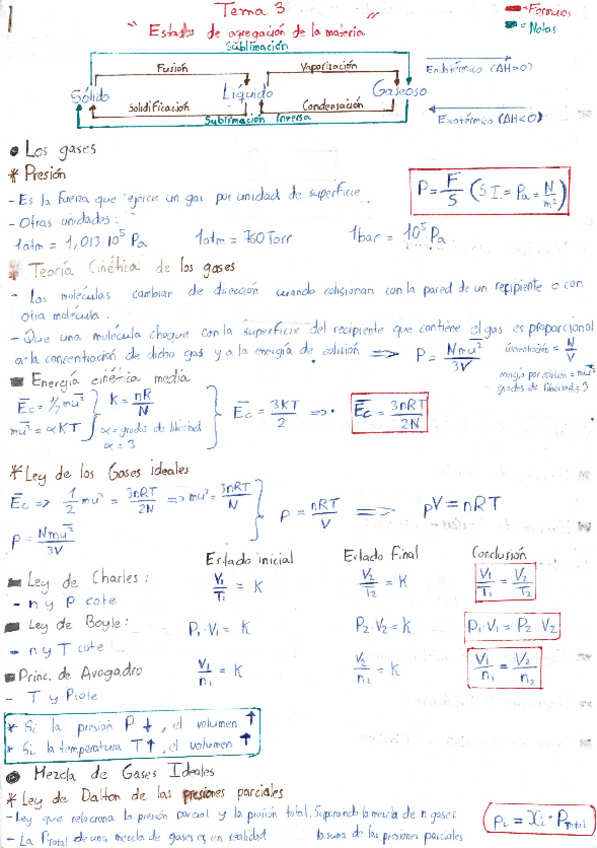 1
Tema 3
" Estados de agregación de la materia "
- Fórmulas
- Notas
Sublimación
Fusión
Vaporización
Sólido
Líquido
Gaseoso
Solidificación
Condensación
Sublimación inversa
Endotérmico (ΔH>0)
Exotérmico (ΔH<0)
• Los gases
* Presión
- Es la fuerza que ejerce un gas por unidad de superficie.
P = F/S (S.I. = Pa = N/m²)
- Otras unidades:
1atm = 1,013·10⁵ Pa 1atm = 760 Torr 1bar = 10⁵ Pa
* Teoría Cinética de los gases
- Las moléculas cambiar de dirección cuando colisionan con la pared de un recipiente o con
otra molécula.
- Que una molécula choque con la superficie del recipiente que contiene el gas es proporcional
a la concentración de dicho gas y a la energía de colisión => P = Nmu²/3V
Concentración = N/V
energía por colisión = mu²
grados de libertad = 3
Energía cinética media
Ec = 1/2 mu² K = nR/N Ec = 3KT/2 => Ec = 3nRT/2N
mu² = αKT α = grados de libertad
α = 3
* Ley de los Gases ideales
Ec => 1/2 mu² = 3nRT/2N => mu² = 3nRT/N
P = nRT/V => PV = nRT
P = Nmu²/3V
Estado inicial Estado Final Conclusión
Ley de Charles: V1/T1 = K V2/T2 = K V1/T1 = V2/T2
- n y P cote
Ley de Boyle: P1·V1 = K P2 V2 = K P1·V1 = P2 V2
- n y T cote
Princ. de Avogadro V1/n1 = K V2/n2 = K V1/n1 = V2/n2
- T y P
* Si la presión P ↓, el volumen ↑
* Si la temperatura T ↑, el volumen ↑
• Mezcla de Gases Ideales
* Ley de Dalton de las presiones parciales
- Ley que relaciona la presión parcial y la presión total. Suponando la mezcla de n gases
Pi = Xi · PTotal
- La PTotal de una mezcla de gases es en realidad la suma de las presiones parciales